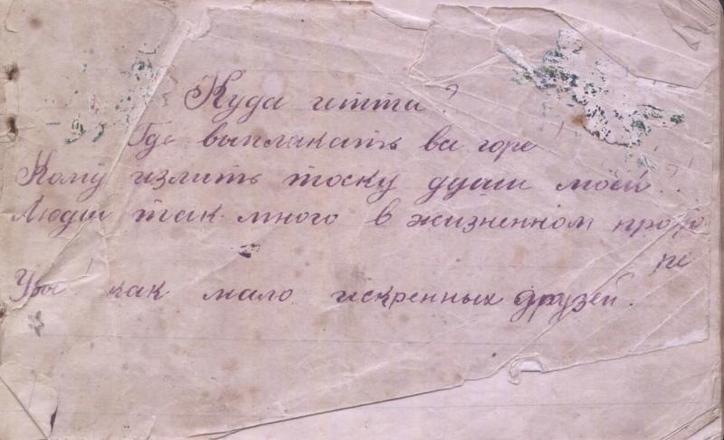 Куда итти?
Где выплакать ва горе!
Кому излить тоску души моей..?
Люди так много в жизненном просто
ре
Увы! как мало искренных друзей.